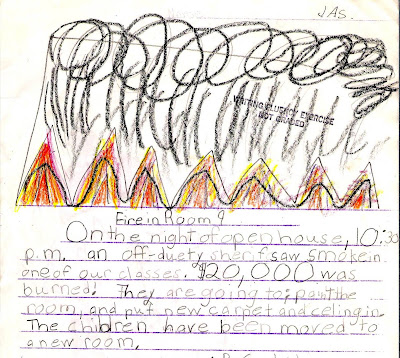 JAS.
WRITING FLUENCY EXERCISE
NOT GRADED
Fire in Room 9
On the night of open house, 10:30
p.m. an off-duety sherif saw smoke in
one of our classes. $120,000 was
burned! They are going to; paint the
room, and put new carpet and celing in.
The children have been moved to
a new room.